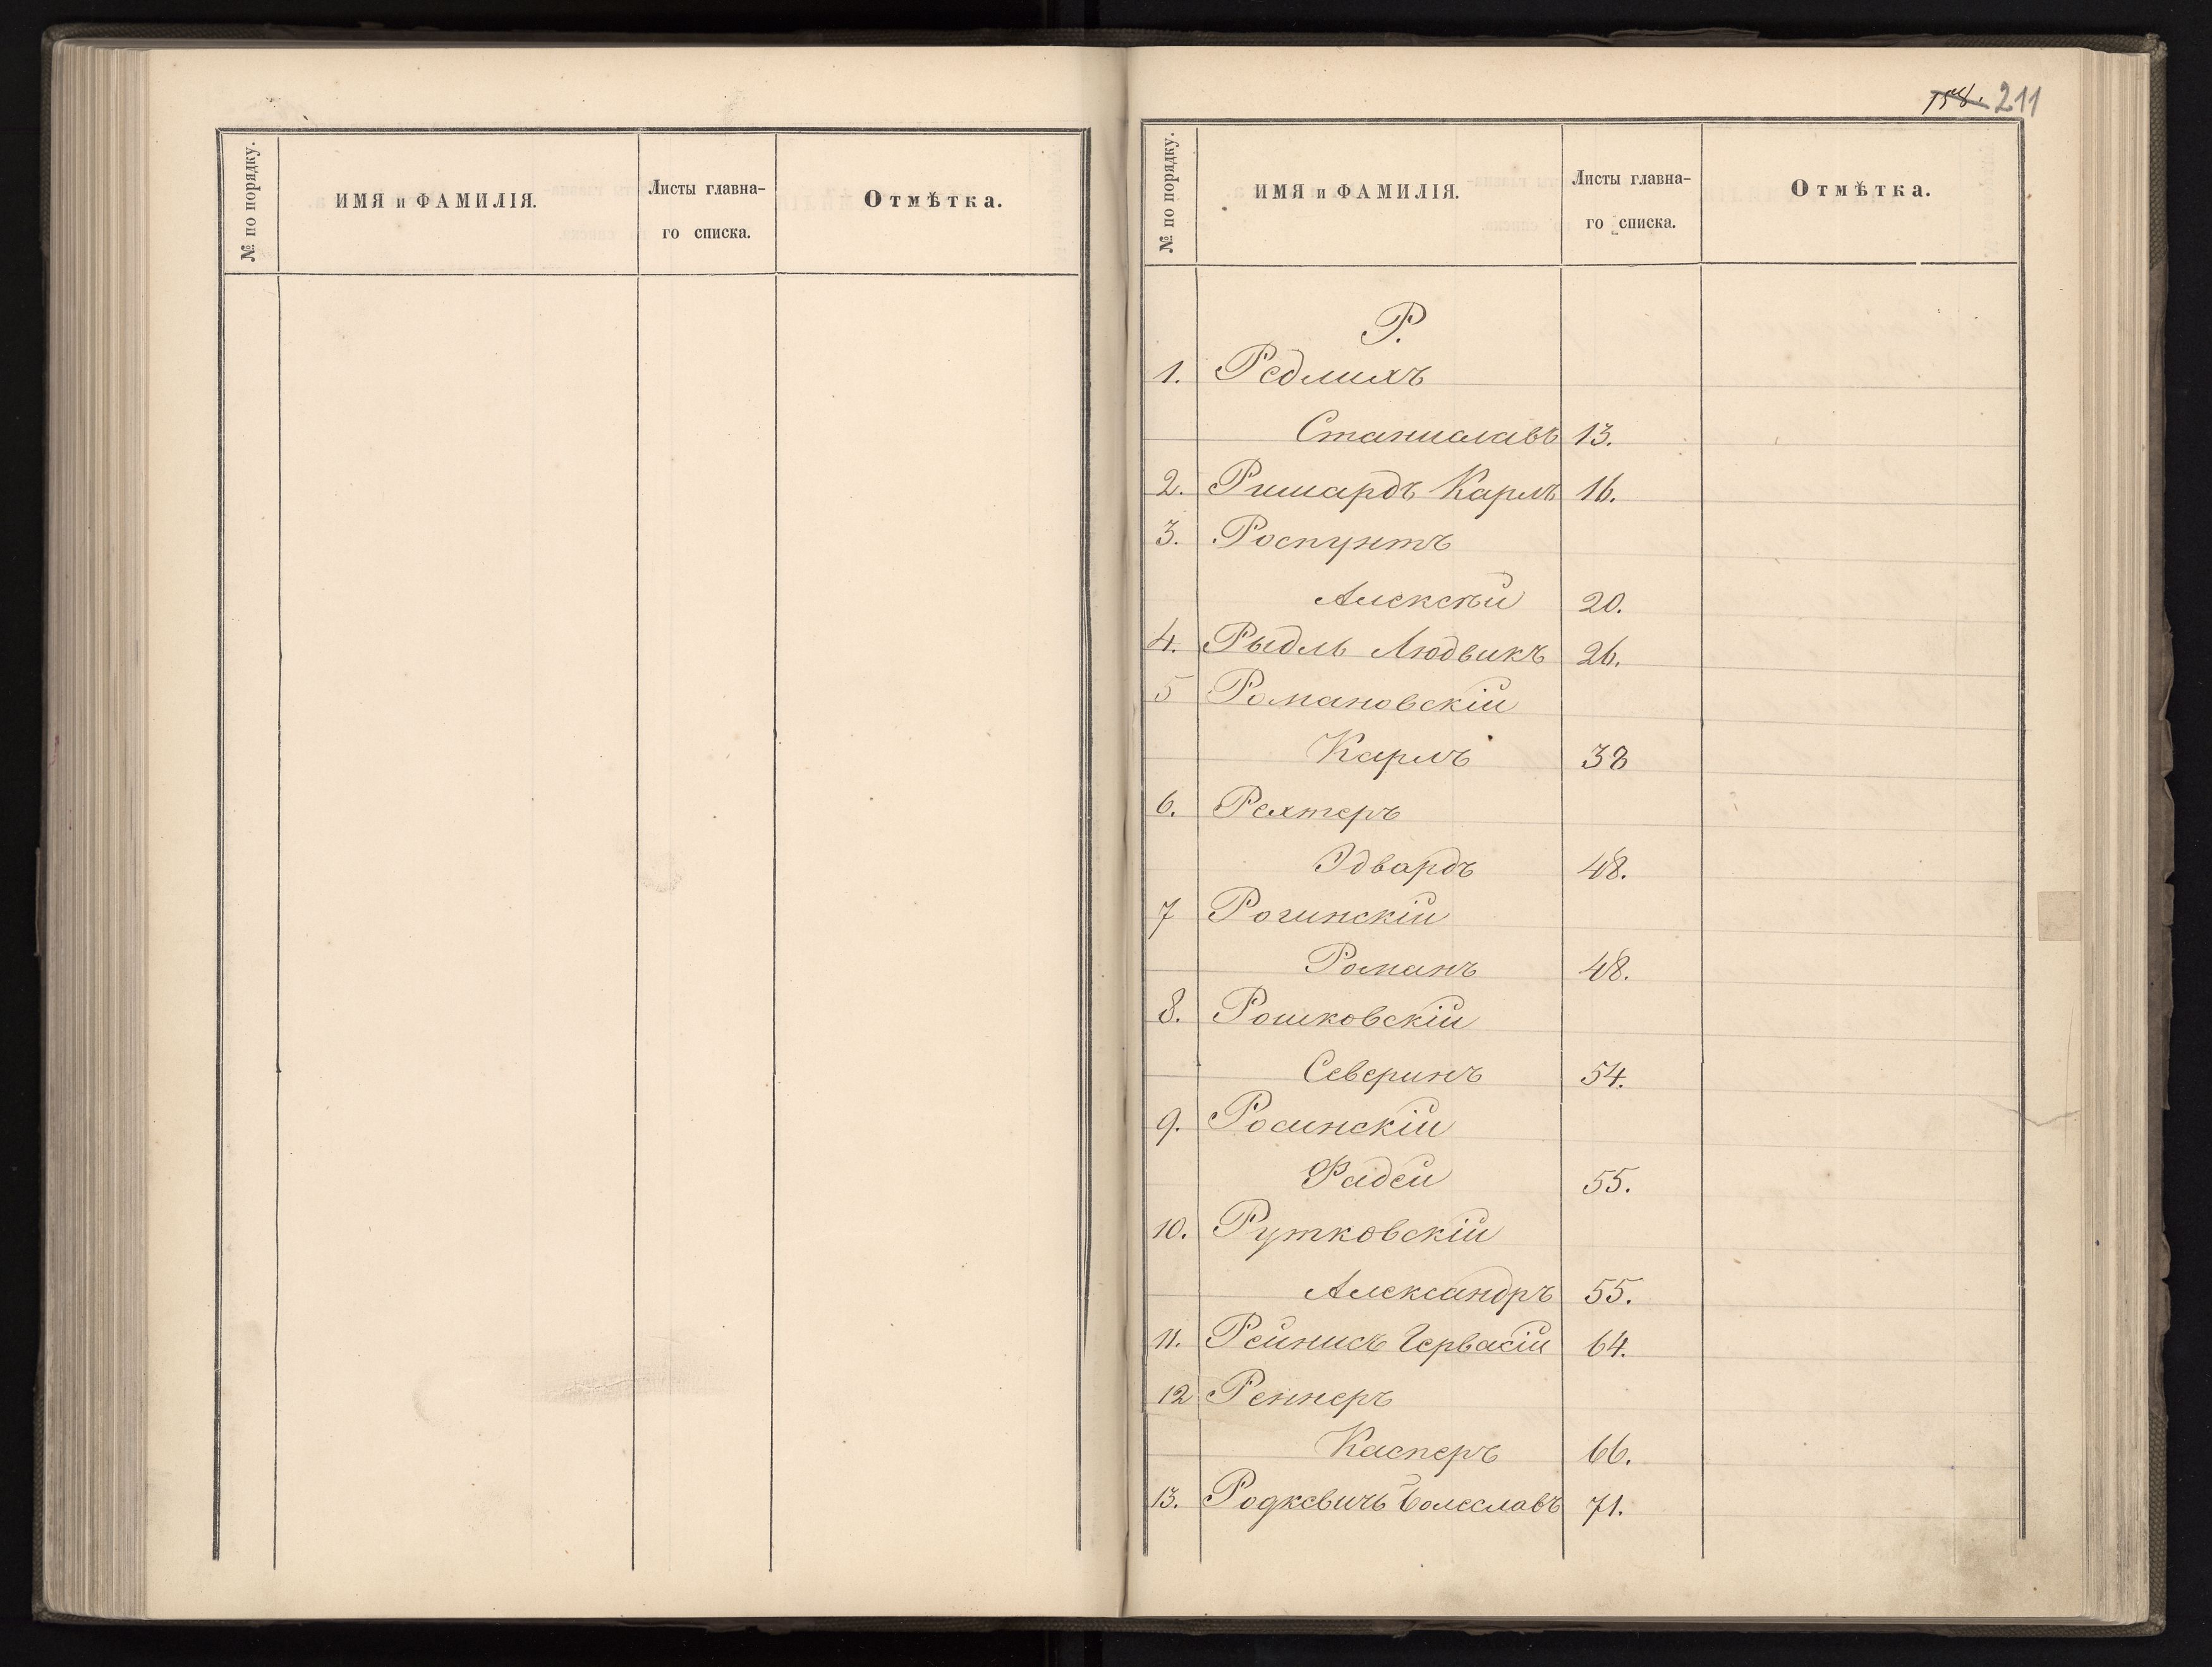 № по порядку.
ИМЯ и ФАМИЛІЯ.
Листы главна-
го списка.
Отмѣтка.
158. 211
№ по порядку.
ИМЯ и ФАМИЛІЯ.
Листы главна-
го списка.
Отмѣтка.
Р.
1. Редлихъ
Станиславъ 13.
2. Ришардъ Карлъ 16.
3. Роспунтъ
Алексѣй 20.
4. Рыдль Людвикъ 26.
5 Романовскій
Карлъ 38
6. Рехтеръ
Эдвардъ 48.
7 Рогинскій
Романъ 48.
8. Рошковскій
Северинъ 54.
9. Росинскій
Фадей 55.
10. Рутковскій
Александръ 55.
11. Рейнисъ Гервасій 64.
12 Реннеръ
Касперъ 66.
13. Родкевичъ Болеславъ 71.